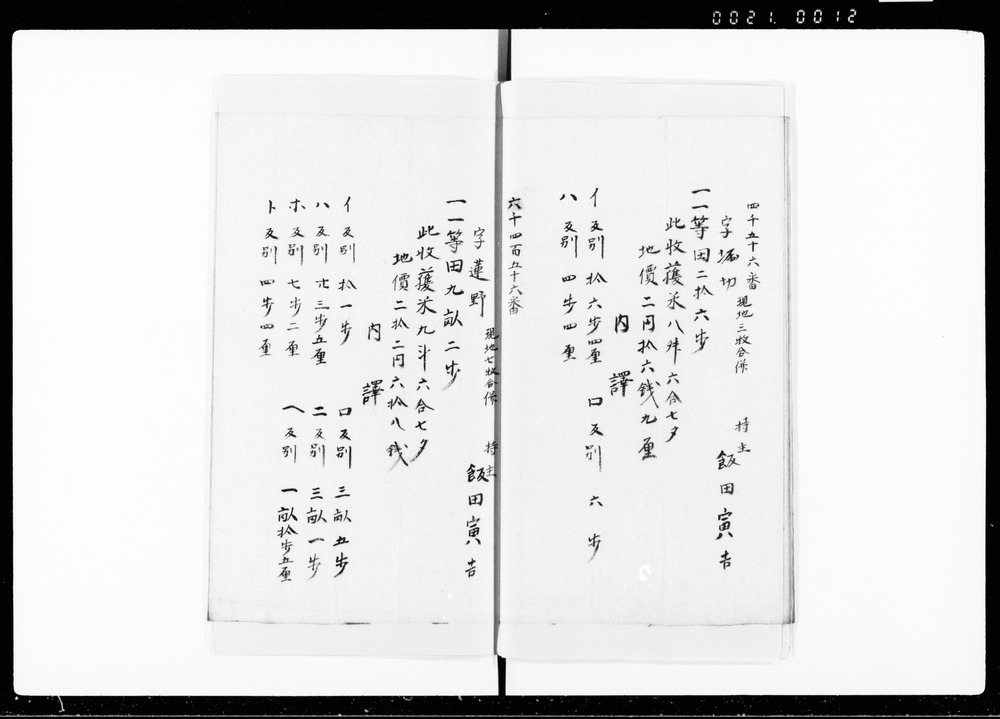 0021. 0012
四千五十六番
字堀切 現地三枚合併 持主 飯田寅吉
一一等田二拾六歩
此收穫米八舛六合七夕
地價二円拾六錢九厘
内譯
イ反別 拾六歩四厘 ロ反別 六歩
ハ反別 四歩四厘
六千四百五十六番
字蓮野 現地七枚合併 持主 飯田寅吉
一一等田九畝二歩
此收穫米九斗六合七夕
地價二拾二円六拾八錢
内譯
イ反別 拾一歩 ロ反別 三畝五歩
ハ反別 廿三歩五厘 二反別 三畝一歩
ホ反別 七歩二厘 ヘ反別 一畝拾歩五厘
ト反別 四歩四厘